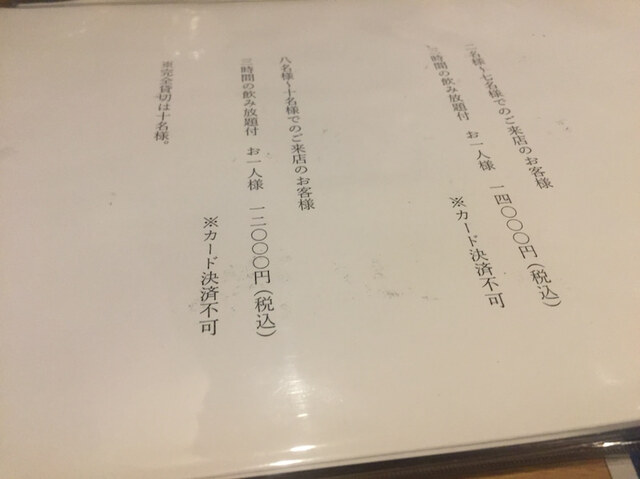 二名様~七名様でのご来店のお客様
三時間の飲み放題付 お一人様 一四〇〇〇円(税込)
※カード決済不可
八名様~十名様でのご来店のお客様
三時間の飲み放題付 お一人様 一二〇〇〇円(税込)
※カード決済不可
※完全貸切は十名様。